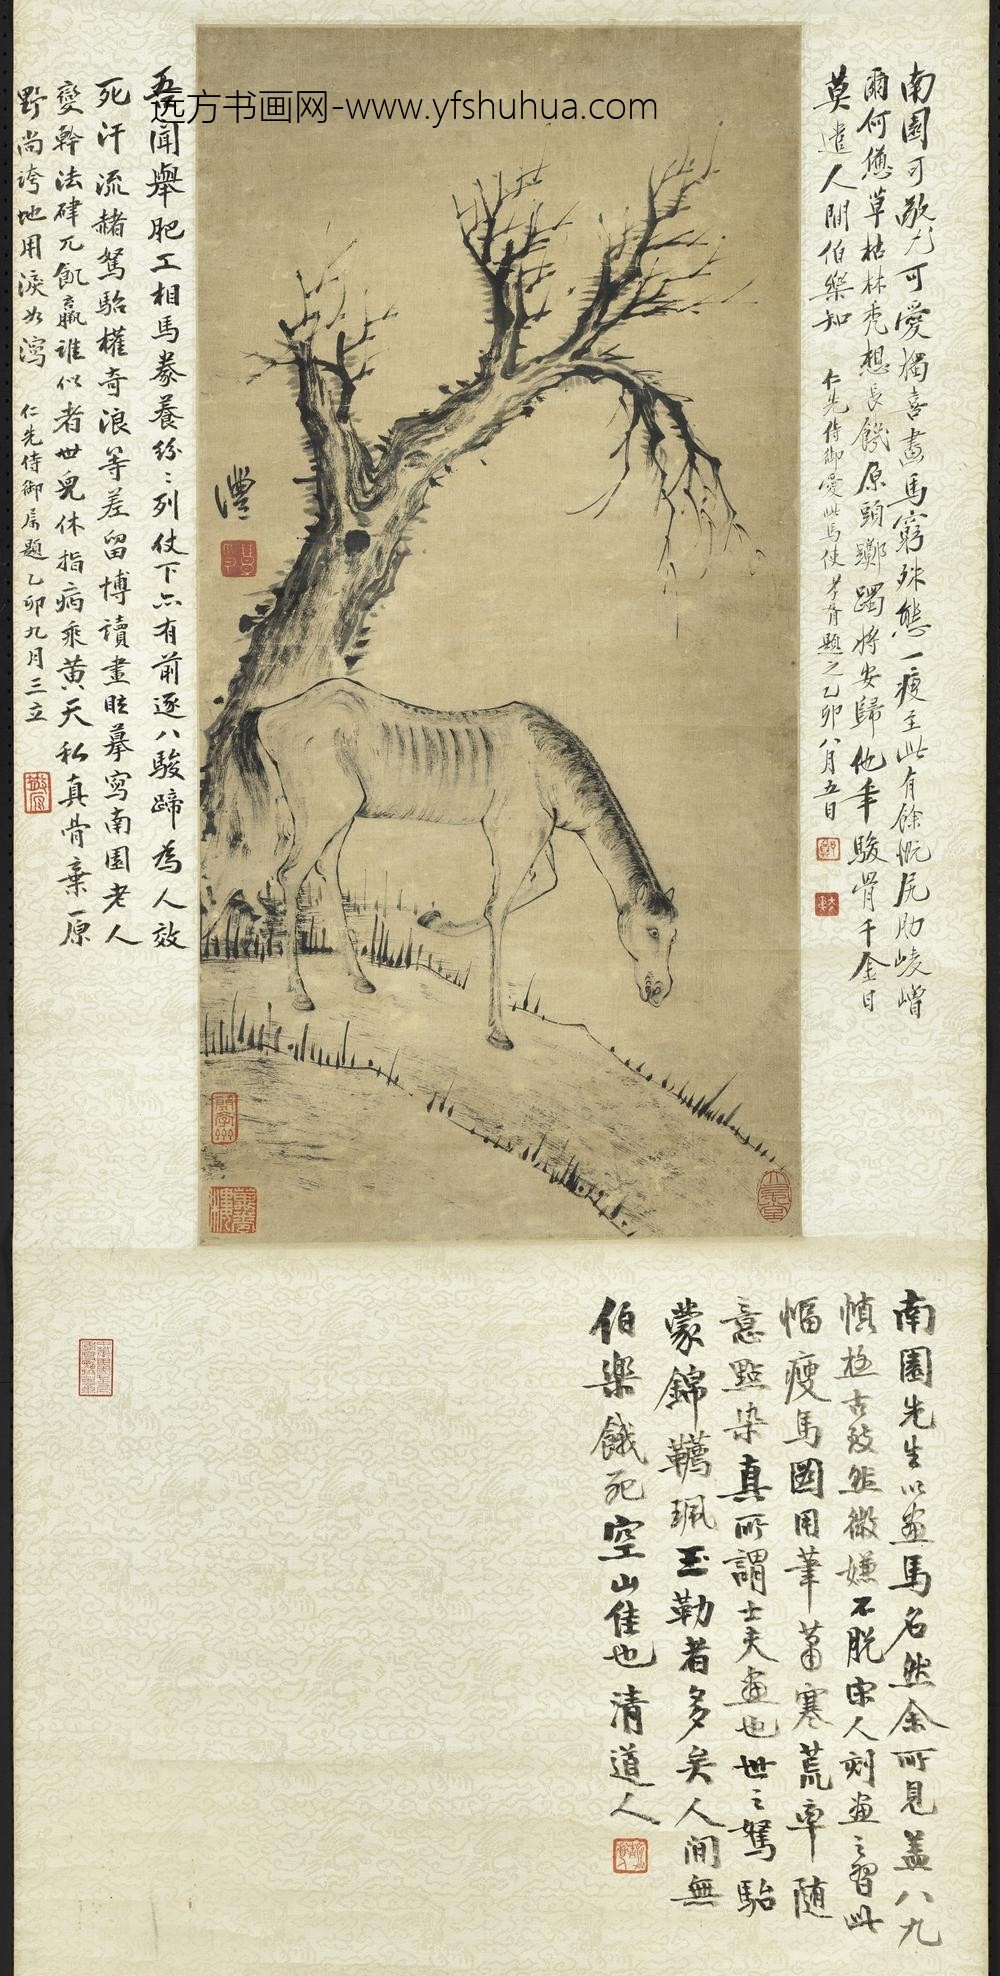 远方书画网-www.yfshuhua.com
南園可敬亦可愛獨喜畫馬窮殊態一瘦至此有餘慨尻肋崚嶒
爾何憊草枯林禿想長饑原頭躑躅將安歸他年駿骨千金日
莫遣人間伯樂知
仁先侍御愛此馬使孝胥題之乙卯八月五日
灃
五聞舉肥工相馬豢養紛〻列仗下亦有前逐八駿蹄為人效
死汗流赭駑駘權奇浪等差留博讀畫眩摹寫南園老人
變幹法肆兀飢羸誰似者世兒休指病乘黃天私真骨棄原
野尚誇地用淚如瀉
仁先侍御屬題乙卯九月三立
南園先生以畫馬名然余所見蓋八九
慎極古致然微嫌不脫宋人刻畫之習此
幅瘦馬圖用筆蕭寒荒率隨
意點染真所謂士夫畫也世之駑駘
蒙錦韉珮玉勒者多矣人間無
伯樂餓死空山佳也清道人